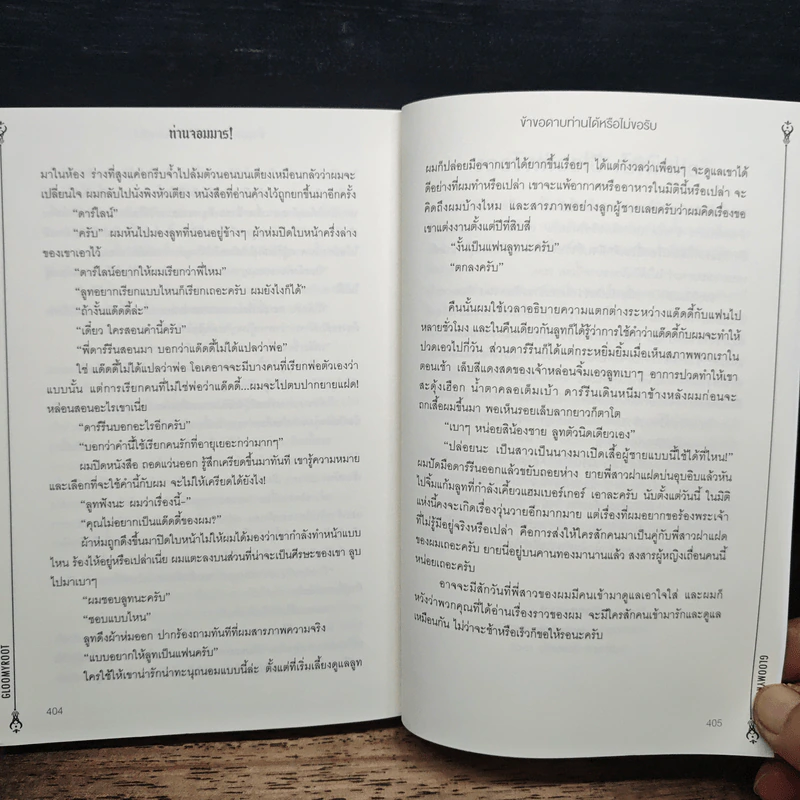 ท่านจอมมาร!
มาในห้อง ร่างที่สูงแค่อกรีบจ้ำไปล้มตัวนอนบนเตียงเหมือนกลัวว่าผมจะ
เปลี่ยนใจ ผมกลับไปนั่งพิงหัวเตียง หนังสือที่อ่านค้างไว้ถูกยกขึ้นมาอีกครั้ง
“ดาร์ไลน์”
“ครับ” ผมหันไปมองลูทที่นอนอยู่ข้างๆ ผ้าห่มปิดใบหน้าครึ่งล่าง
ของเขาเอาไว้
“ดาร์ไลน์อยากให้ผมเรียกว่าพี่ไหม”
“ลูทอยากเรียกแบบไหนก็เรียกเถอะครับ ผมยังไงก็ได้”
“ถ้างั้นแด๊ดดี้ล่ะ”
“เดี๋ยว ใครสอนคำนี้ครับ”
“พี่ดาร์รีนสอนมา บอกว่าแด๊ดดี้ไม่ได้แปลว่าพ่อ”
ใช่ แด๊ดดี้ไม่ได้แปลว่าพ่อ โอเคอาจจะมีบางคนที่เรียกพ่อตัวเองว่า
แบบนั้น แต่การเรียกคนที่ไม่ใช่พ่อว่าแด๊ดดี้...ผมจะไปตบปากยายแฝด!
หล่อนสอนอะไรเขาเนี่ย
“ดาร์รีนบอกอะไรอีกครับ”
“บอกว่าคำนี้ใช้เรียกคนรักที่อายุเยอะกว่ามากๆ”
ผมปิดหนังสือ ถอดแว่นออก รู้สึกเครียดขึ้นมาทันที เขารู้ความหมาย
และเลือกที่จะใช้คำนี้กับผม จะไม่ให้เครียดได้ยังไง!
“ลูทฟังนะ ผมว่าเรื่องนี้-”
“คุณไม่อยากเป็นแด๊ดดี้ของผม?”
ผ้าห่มถูกดึงขึ้นมาปิดใบหน้าไม่ให้ผมได้มองว่าเขากำลังทำหน้าแบบ
ไหน ร้องไห้อยู่หรือเปล่าเนี่ย ผมแตะลงบนส่วนที่น่าจะเป็นศีรษะของเขา ลูบ
ไปมาเบาๆ
“ผมชอบลูทนะครับ”
“ชอบแบบไหน”
ลูทดึงผ้าห่มออก ปากร้องถามทันทีที่ผมสารภาพความจริง
“แบบอยากให้ลูทเป็นแฟนครับ”
ใครใช้ให้เขาน่ารักน่าทะนุถนอมแบบนี้ล่ะ ตั้งแต่ที่เริ่มเลี้ยงดูแลลูท
404
GLOOMYROOT
ข้าขอดาบท่านได้หรือไม่ขอรับ
ผมก็ปล่อยมือจากเขาได้ยากขึ้นเรื่อยๆ ได้แต่กังวลว่าเพื่อนๆ จะดูแลเขาได้
ดีอย่างที่ผมทำหรือเปล่า เขาจะแพ้อากาศหรืออาหารในมิตินี้หรือเปล่า จะ
คิดถึงผมบ้างไหม และสารภาพอย่างลูกผู้ชายเลยครับว่าผมคิดเรื่องขอ
เขาแต่งงานตั้งแต่ปีที่สิบสี่
“งั้นเป็นแฟนลูทนะครับ”
“ตกลงครับ”
คืนนั้นผมใช้เวลาอธิบายความแตกต่างระหว่างแด๊ดดี้กับแฟนไป
หลายชั่วโมง และในคืนเดียวกันลูทก็ได้รู้ว่าการใช้คำว่าแด๊ดดี้กับผมจะทำให้
ปวดเอวไปกี่วัน ส่วนดาร์รีนก็ได้แต่กระหยิ่มยิ้มเมื่อเห็นสภาพพวกเราใน
ตอนเช้า เล็บสีแดงสดของเจ้าหล่อนจิ้มเอวลูทเบาๆ อาการปวดทำให้เขา
สะดุ้งเฮือก น้ำตาคลอเต็มเบ้า ดาร์รีนเดินหนีมาข้างหลังผมก่อนจะ
ถกเสื้อผมขึ้นมา พอเห็นรอยเล็บลากยาวก็ตาโต
“เบาๆ หน่อยสิน้องชาย ลูทตัวนิดเดียวเอง”
“ปล่อยนะ เป็นสาวเป็นนางมาเปิดเสื้อผู้ชายแบบนี้ใช้ได้ที่ไหน!”
ผมปัดมือดาร์รีนออกแล้วขยับถอยห่าง ยายพี่สาวฝาแฝดบ่นอุบอิบแล้วหัน
ไปจิ้มแก้มลูทที่กำลังเคี้ยวแฮมเบอร์เกอร์ เอาละครับ นับตั้งแต่วันนี้ ในมิติ
แห่งนี้คงจะเกิดเรื่องวุ่นวายอีกมากมาย แต่เรื่องที่ผมอยากขอร้องพระเจ้า
ที่ไม่รู้มีอยู่จริงหรือเปล่า คือการส่งให้ใครสักคนมาเป็นคู่กับพี่สาวฝาแฝด
ของผมเถอะครับ ยายนี่อยู่บนคานทองมานานแล้ว สงสารผู้หญิงเถื่อนคนนี้
หน่อยเถอะครับ
อาจจะมีสักวันที่พี่สาวของผมมีคนเข้ามาดูแลเอาใจใส่ และผมก็
หวังว่าพวกคุณที่ได้อ่านเรื่องราวของผม จะมีใครสักคนเข้ามารักและดูแล
เหมือนกัน ไม่ว่าจะช้าหรือเร็วก็ขอให้รอนะครับ
405